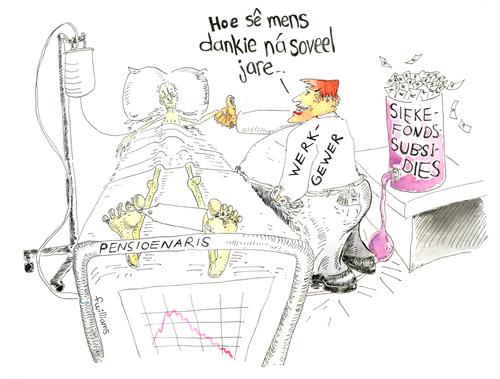 Hoe sê mens
dankie ná soveel
jare...
WERK-
GEWER
SIEKE-
FONDS-
SUBSI-
DIES
PENSIOENARIS
fwilliams